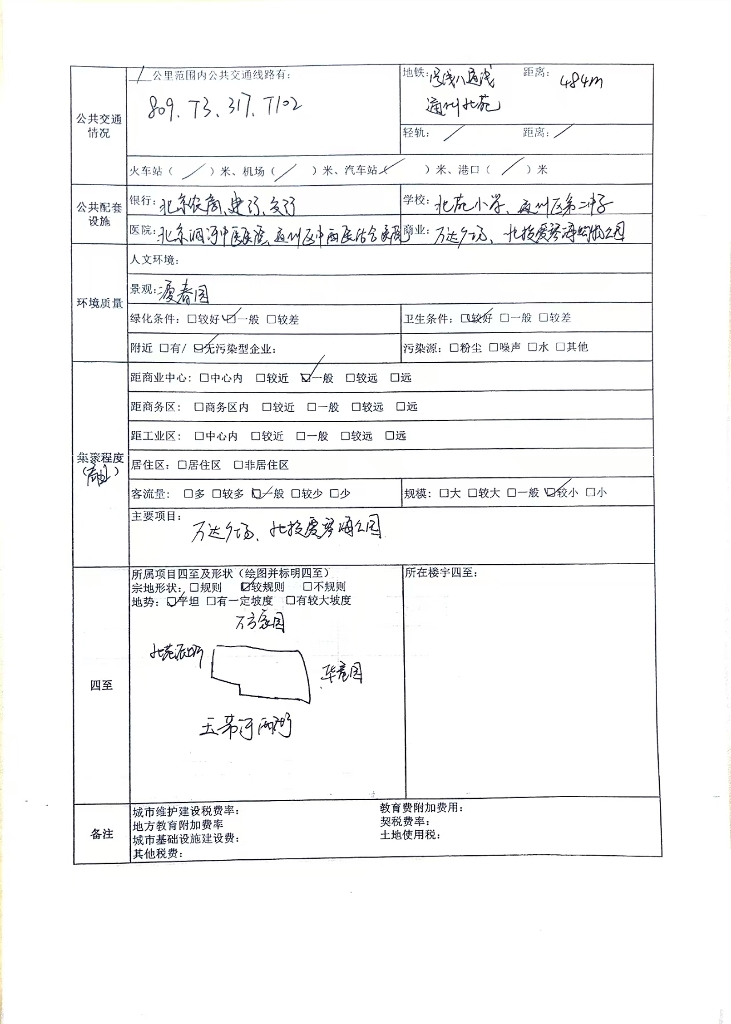 公共交通情况
1公里范围内公共交通线路有：
809、T3、317、T102
地铁：号线八通线 距离：484m
通州北苑
轻轨：/ 距离：/
火车站（ / ）米、机场（ / ）米、汽车站（ / ）米、港口（ / ）米
公共配套设施
银行：北京农商、建行、交行 学校：北苑小学、通州区第二中学
医院：北京潞河中医医院、通州区中西医结合医院 商业：万达广场、北投爱琴海购物公园
环境质量
人文环境：
景观：
绿化条件：□较好 ☑一般 □较差 卫生条件：☑较好 □一般 □较差
附近 □有/ ☑无污染型企业： 污染源：□粉尘 □噪声 □水 □其他
集聚程度
（商业）
距商业中心：□中心内 □较近 ☑一般 □较远 □远
距商务区：□商务区内 □较近 □一般 □较远 □远
距工业区：□中心内 □较近 □一般 □较远 □远
居住区：□居住区 □非居住区
客流量：□多 □较多 ☑一般 □较少 □少 规模：□大 □较大 □一般 ☑较小 □小
主要项目：
万达广场、北投爱琴海公园
四至
所属项目四至及形状（绘图并标明四至） 所在楼宇四至：
宗地形状：□规则 ☑较规则 □不规则
地势：☑平坦 □有一定坡度 □有较大坡度
万方家园
北苑派出所
华龙园
玉带河西街
备注
城市维护建设税费率： 教育费附加费用：
地方教育附加费率 契税费率：
城市基础设施建设费： 土地使用税：
其他税费：